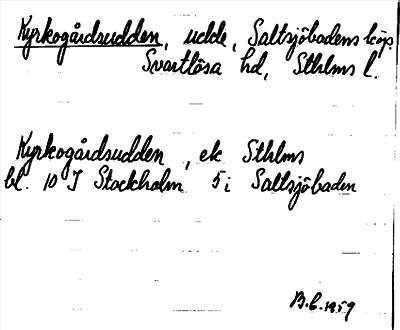 Kyrkogårdsudden, udde, Saltsjöbadens köp
Svartlösa hd, Sthlms l.
Kyrkogårdsudden, ek Sthlms
bl. 10 I Stockholm 5 i Saltsjöbaden
B.C. 1959